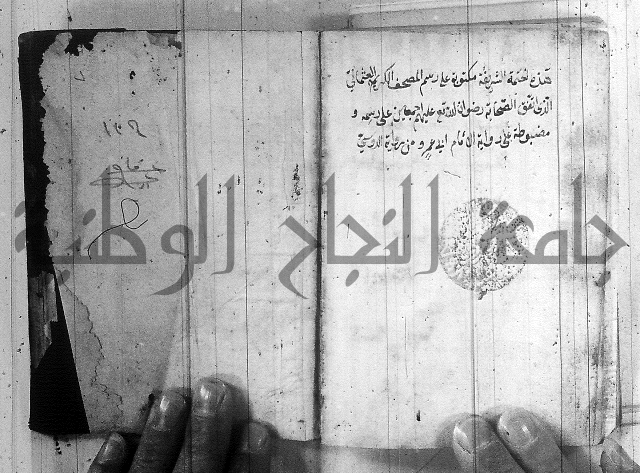 هذه لختمة الشريفة مكتوبة على رسم المصحف الكريم العثماني
الذي اتفق الصحابة رضوان الله تع عليهم اجمعين على رسمه و
مضبوطة على رواية الامام ابي عمرو من رواية الدوسي
١٢٩
جامعة النجاح الوطنية